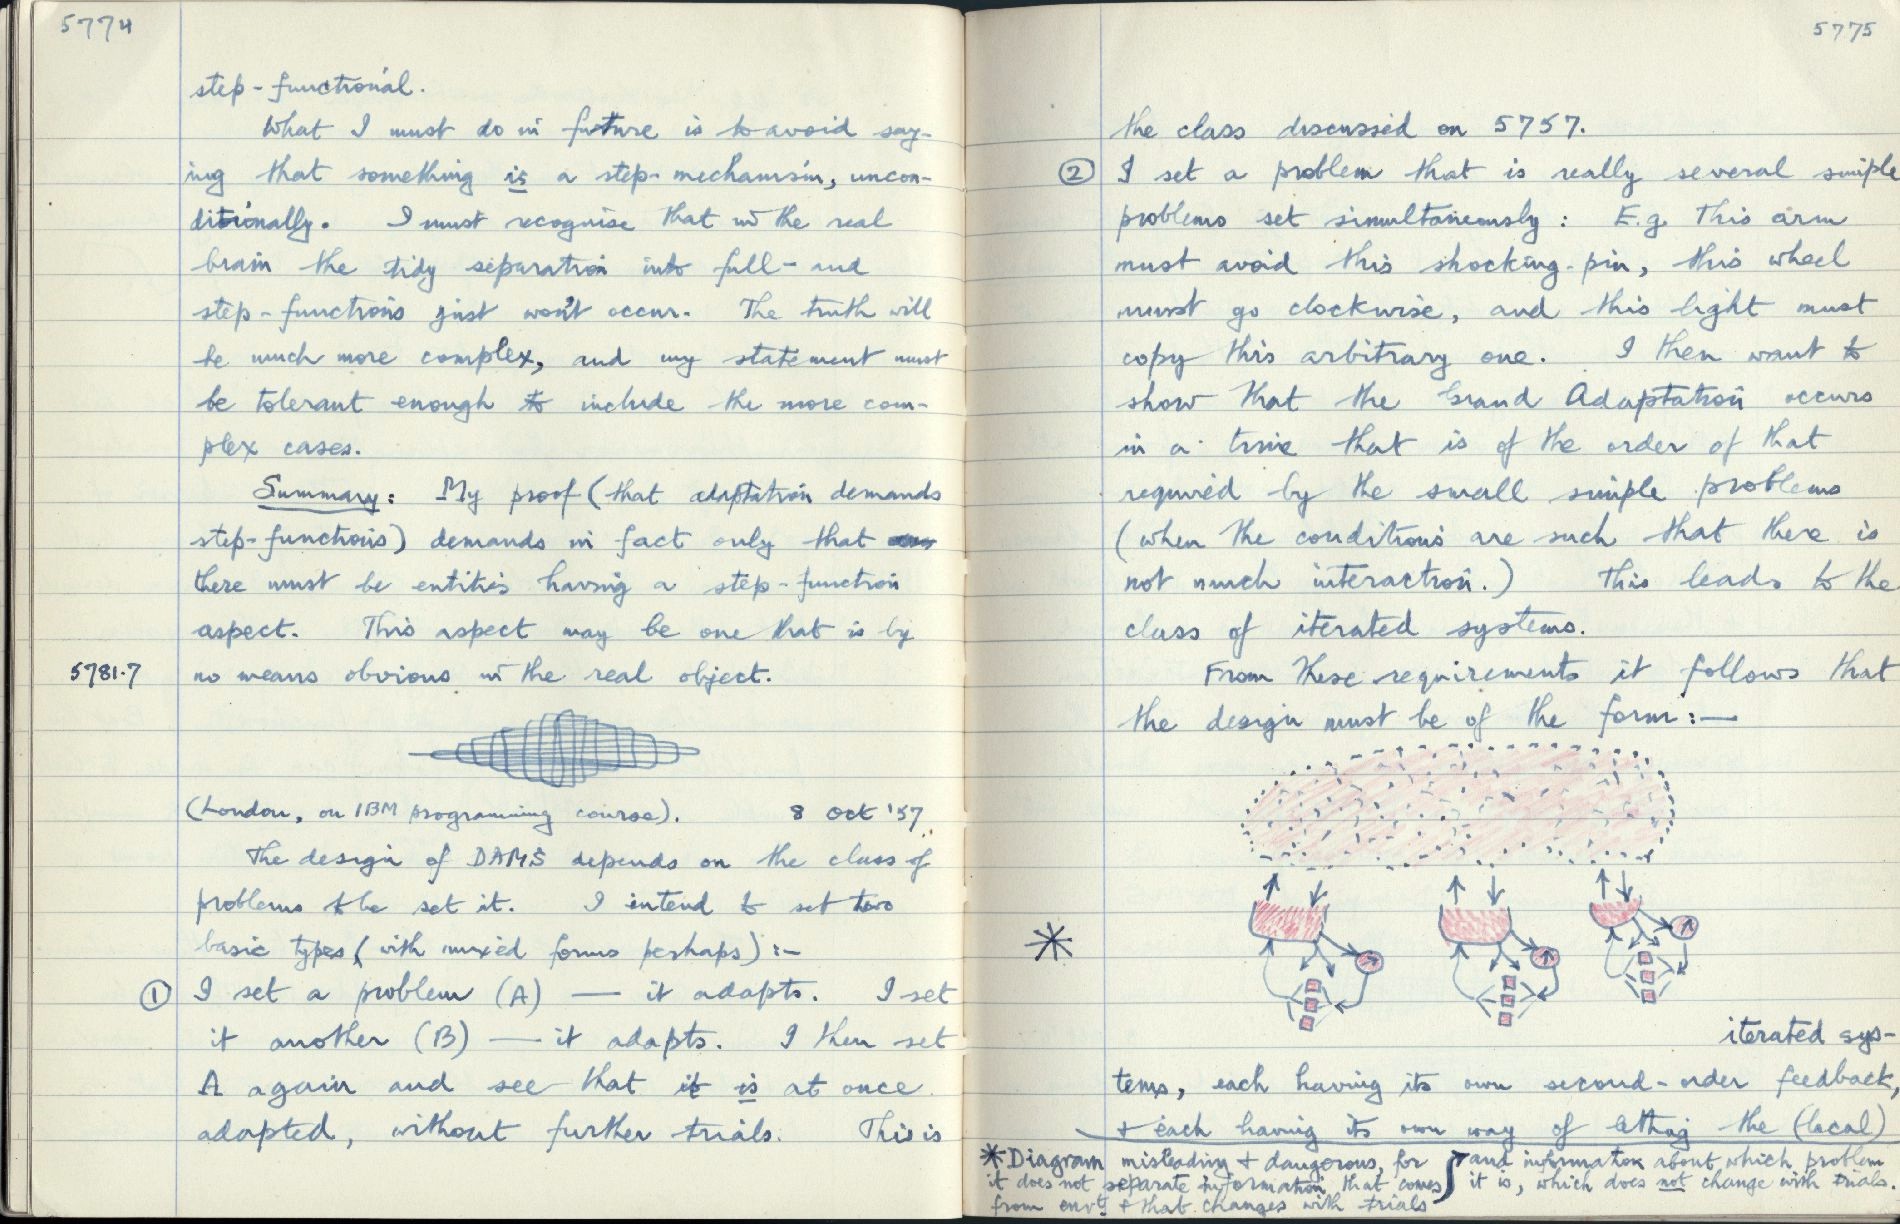 5774
step-functional.
What I must do in future is to avoid say-
ing that something is a step-mechanism, uncon-
ditionally. I must recognise that in the real
brain the tidy separation into full- and
step-functions just won't occur. The truth will
be much more complex, and my statement must
be tolerant enough to include the more com-
plex cases.
Summary: My proof (that adaptation demands
step-functions) demands in fact only that
there must be entities having a step-function
aspect. This aspect may be one that is by
5781.7 no means obvious in the real object.
(London, on IBM programming course). 8 Oct '57
The design of DAMS depends on the class of
problems to be set it. I intend to set two
basic types (with mixed forms perhaps) :-
① I set a problem (A) — it adapts. I set
it another (B) — it adapts. I then set
A again and see that it is at once
adapted, without further trials. This is
5775
the class discussed on 5757.
② I set a problem that is really several simple
problems set simultaneously : E.g. This arm
must avoid this shocking-pin, this wheel
must go clockwise, and this light must
copy this arbitrary one. I then want to
show that the Grand Adaptation occurs
in a time that is of the order of that
required by the small simple problems
(when the conditions are such that there is
not much interaction.) This leads to the
class of iterated systems.
From these requirements it follows that
the design must be of the form :—
*
iterated sys-
tems, each having its own second-order feedback,
+ each having its own way of letting the (local)
*Diagram misleading + dangerous, for
it does not separate information that comes
from envt. + that changes with trials
and information about which problem
it is, which does not change with trials.